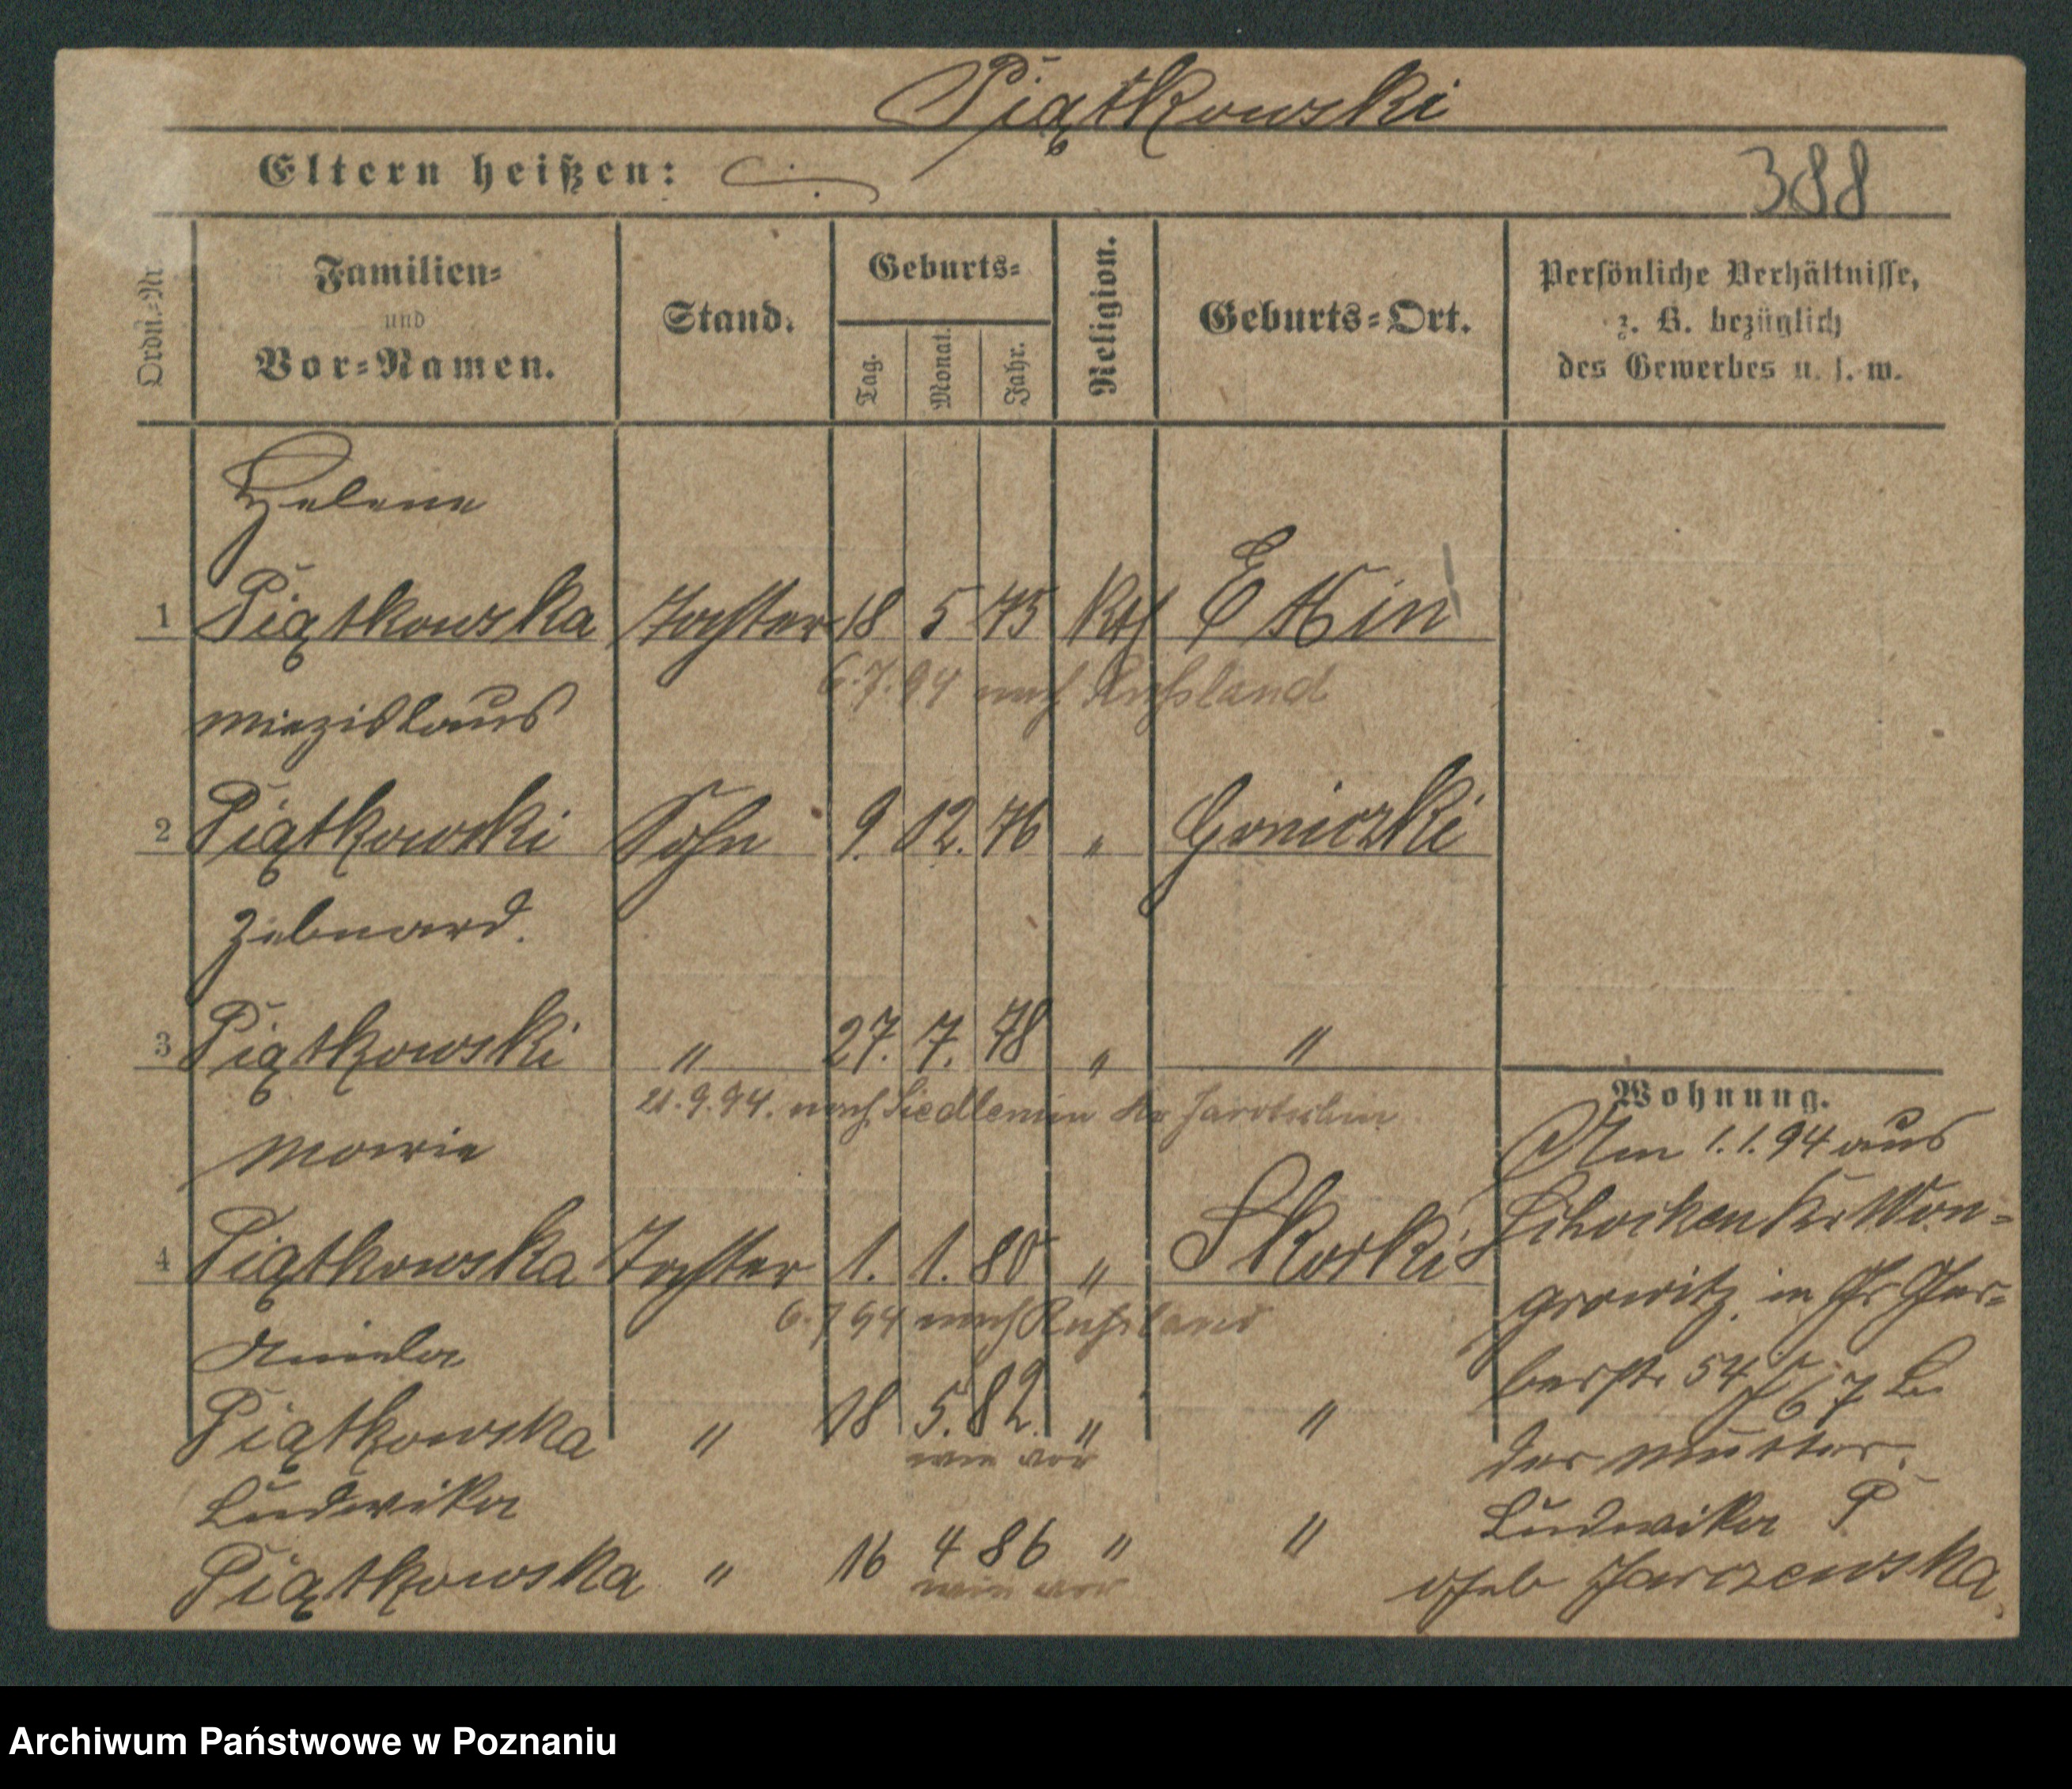 Piątkowski
Eltern heißen:
388
Ordn.=Nr.
Familien=
und
Vor=Namen.
Stand.
Geburts=
Tag.
Monat.
Jahr.
Religion.
Geburts=Ort.
Persönliche Verhältnisse,
z. B. bezüglich
des Gewerbes u. s. w.
Helene
1 Piątkowska Tochter 18 5 75 Kth
6.7.94 nach Russland
Miezislaus
2 Piątkowski Sohn 9. 12. 76 " Goniczki
3 Piątkowski " 27. 7. 78 " "
21.9.94. nach Siedlemin Kr Jarotschin
Marie
4 Piątkowska Tochter 1. 1. 80 " Skorki
6.7 94 nach Russland
Aniela
Piątkowska " 18 5. 82. " "
wie vor
Ludwika
Piątkowska " 16 4 86 " "
wie vor
Wohnung.
Am 1.1.94 aus
Schocken Kr Won=
growitz. in Gr Ger=
berstr 54 b.
der Mutter.
Ludwika P
geb Jarczewska
Archiwum Państwowe w Poznaniu